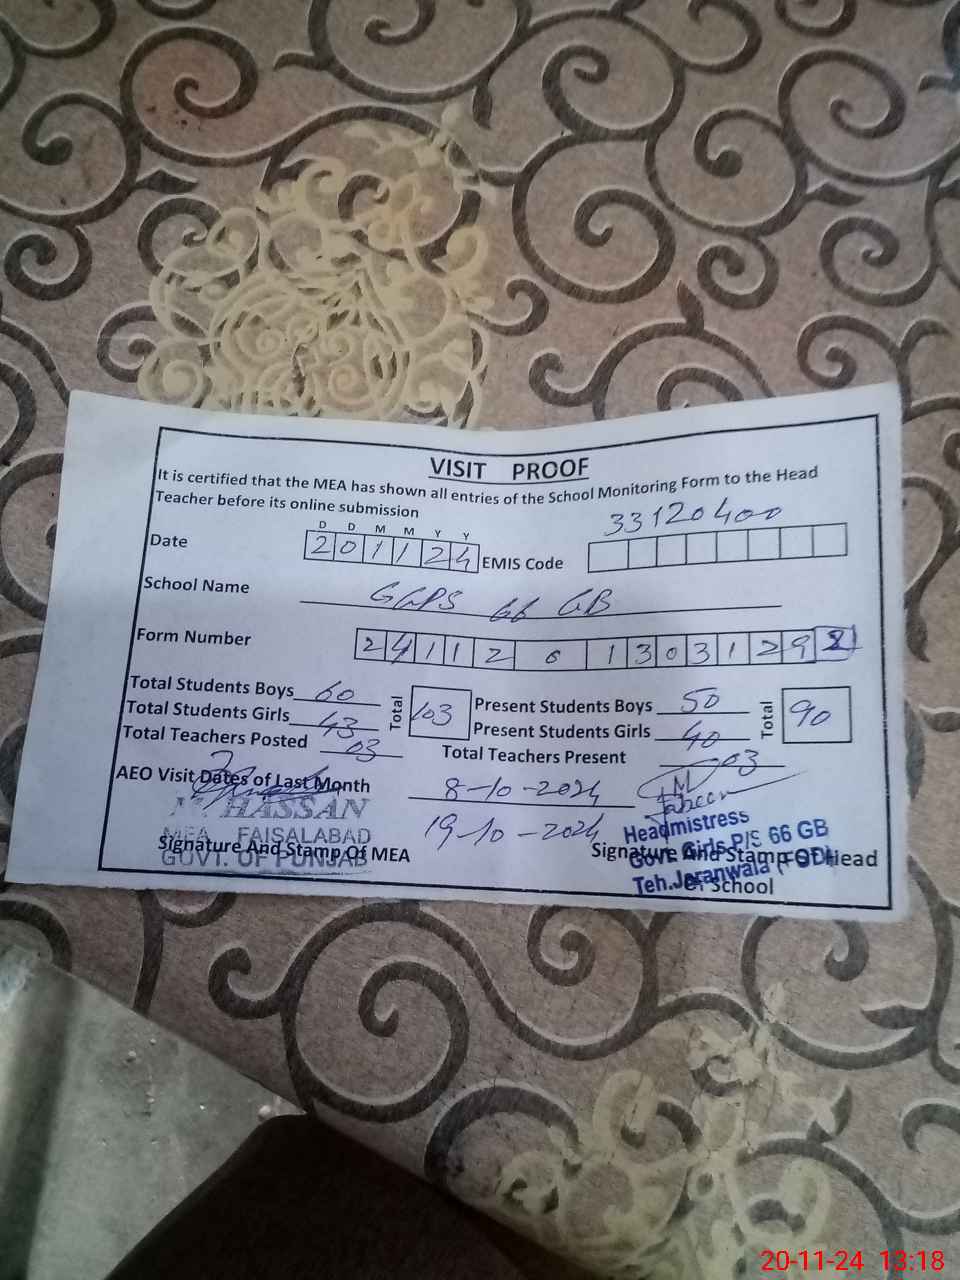 VISIT PROOF
It is certified that the MEA has shown all entries of the School Monitoring Form to the Head
Teacher before its online submission
D D M M Y Y
33120400
Date 2 0 1 1 2 4 EMIS Code
School Name GGPS 66 GB
Form Number 2 4 1 1 2 0 1 3 0 3 1 2 9
Total Students Boys 60 Total 103 Present Students Boys 50 Total 90
Total Students Girls 43 Present Students Girls 40
Total Teachers Posted 03 Total Teachers Present 03
AEO Visit Dates of Last Month 8-10-2024
19-10-2024
M. HASSAN
MEA FAISALABAD
GOVT. OF PUNJAB
Signature And Stamp Of MEA
Headmistress
Govt. Girls P/S 66 GB
Teh. Jaranwala (FSD)
Signature And Stamp Of Head
Of School
20-11-24 13:18